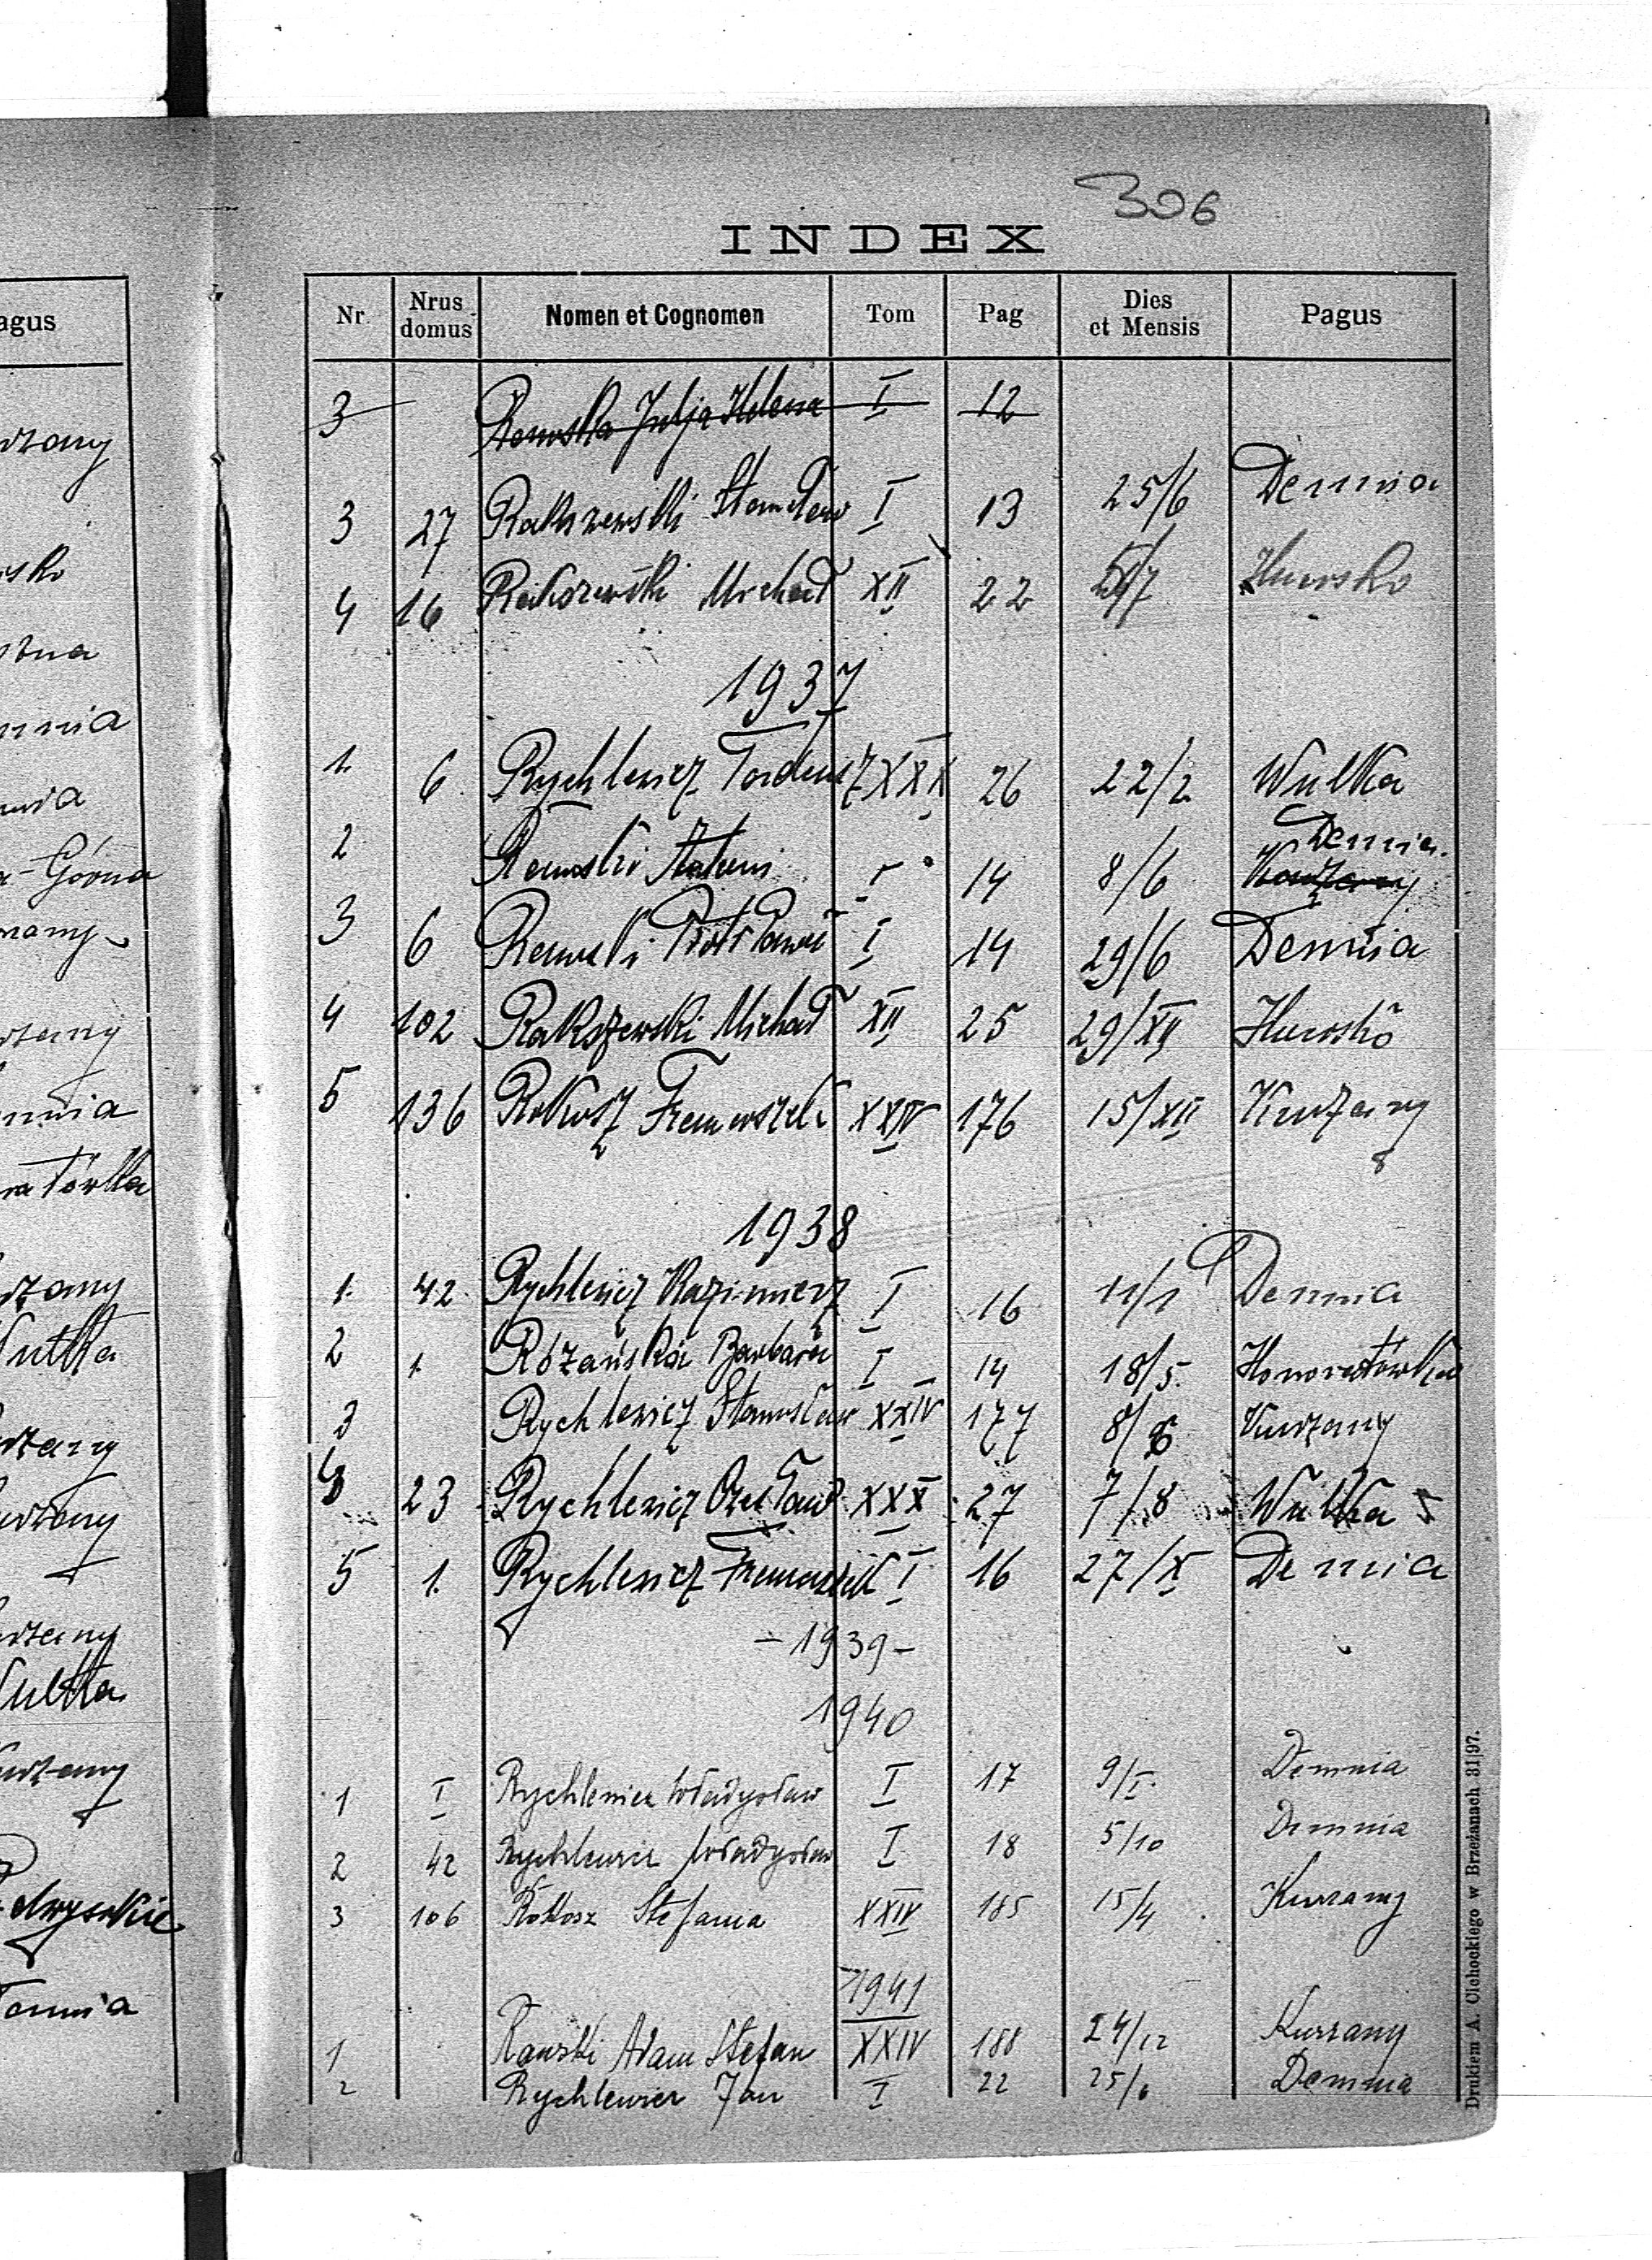 306
INDEX
Nr. Nrus domus Nomen et Cognomen Tom Pag Dies et Mensis Pagus
3 Rawska Julja Helena I 12
3 27 Rakszewski Stanisław I 13 25/6 Demnia
4 16 Rakszewski Michał XII 22 Huwsko
1937
1. 6 Rychlewicz Tadeusz XXX 26 22/2 Wulka
2 Rawski I 14 8/6 Demnia. Kurzany
3 6 Rawski Piotr Paweł I 14 29/6 Demnia
4 102 Rakszewski Michał XII 25 29/XII Huwsko
5 136 Rokosz Franciszek XXIV 176 15/XII Kurzany
1938
1. 42 Rychlewicz Kazimierz I 16 11/1 Demnia
2 1. Różańska Barbara I 14 18/5. Honoratówka
3 Rychlewicz Stanisław XXIV 177 8/6 Kurzany
23 Rychlewicz Czesław XXX 27 7/8 Wulka
5 1. Rychlewicz Franciszek I 16 27/X Demnia
- 1939 -
1940
1 I Rychlewicz Władysław I 17 9/I. Demnia
2 42 Rychlewicz Władysław I 18 5/10 Demnia
3 106 Rokosz Stefania XXIV 185 15/4 Kurzany
1941
1 Rawski Adam Stefan XXIV 188 24/12 Kurzany
2 Rychlewicz Jan I 22 25/6 Demnia
Drukiem A. Cichockiego w Brzeżanach 31|97.
agus
Górna